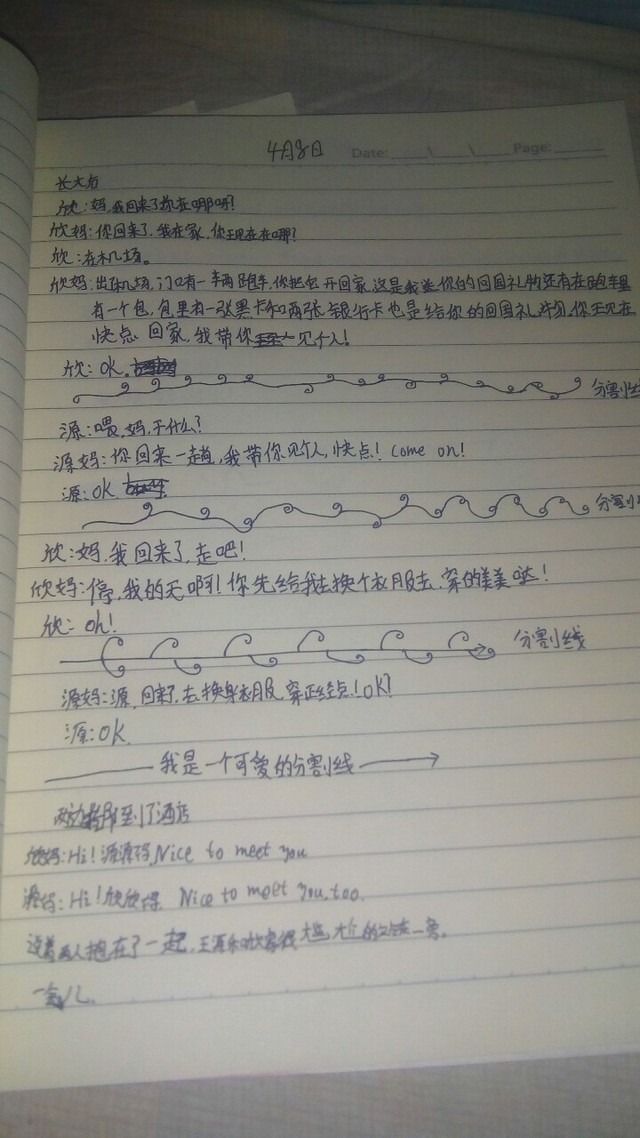 4月8日 Date: Page:
长大后
欣:妈,我回来了你在哪呀?
欣妈:你回来了,我在家,你现在在哪?
欣:在机场。
欣妈:出机场,门口有一辆跑车,你把它开回家,这是我送你的回国礼物还有在跑车里
有一个包,包里有一张黑卡和两张银行卡也是给你的回国礼物,你现在
快点回家,我带你见个人!
欣:OK.
分割线
源:喂,妈,干什么?
源妈:你回来一趟,我带你见个人,快点!Come on!
源:OK
分割线
欣:妈,我回来了,走吧!
欣妈:停,我的天啊!你先给我去换个衣服去,穿的美美哒!
欣:Oh!
分割线
源妈:源,回来了,去换身衣服,穿正经点!OK?
源:OK.
我是一个可爱的分割线
两边都到了酒店
欣妈:Hi!源源妈,Nice to meet you
源妈:Hi!欣欣妈. Nice to meet you, too.
说着两人抱在了一起,王源和欣很尴尬的站在一旁。
一会儿.